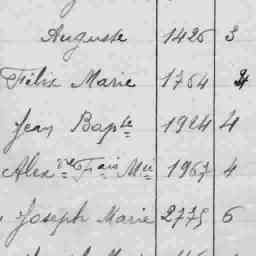 Auguste 1426 3
Félix Marie 1764 4
Jean Bapte 1924 4
Alexdre Fçois Mie 1967 4
Joseph Marie 2775 6